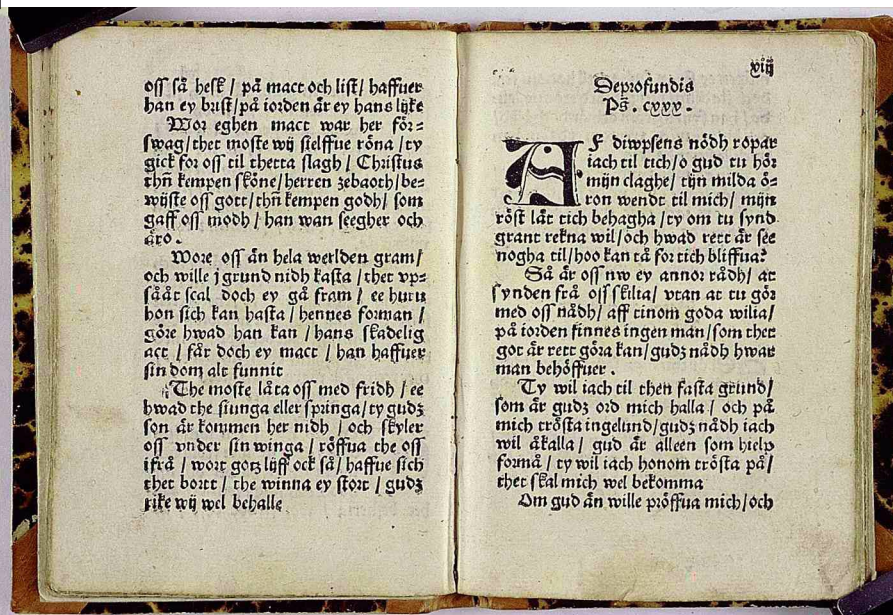 oss så hesk / på mact och list / haffuer
han ey brist / på iorden är ey hans lijke
Wor eghen mact war her för=
swag / thet moste wij sielffue röna / ty
gick for oss til thetta slagh / Christus
thn̄ kempen sköne / herren zebaoth / be=
wijste oss gott / thn̄ kempen godh / som
gaff oss modh / han wan seegher och
äro.
Wore oss än hela werlden gram /
och wille j grund nidh kasta / thet vp=
sååt scal doch ey gå fram / ee huru
hon sich kan hasta / hennes forman /
göre hwad han kan / hans skadelig
act / får doch ey mact / han haffuer
sin dom alt funnit
The moste låta oss med fridh / ee
hwad the siunga eller springa / ty gudz
son är kommen her nidh / och skyler
oss vnder sin winga / röffua the oss
ifrå / wort gotz lijff ock så / haffue sich
thet bortt / the winna ey stort / gudz
rike wij wel behalle
xiij
Deprofundis
Ps̄. cxxx.
AF diwpsens nödh ropar
iach til tich / o gud tu hör
mijn claghe / tijn milda ö=
ron wendt til mich / mijn
röst lät tich behagha / ty om tu synd
grant rekna wil / och hwad rett är see
nogha til / hoo kan tå for tich bliffua?
Så är oss nw ey annor rådh / at
synden frå oss skilia / vtan at tu gör
med oss nådh / aff tinom goda wilia /
på iorden finnes ingen man / som thet
got är rett göra kan / gudz nådh hwar
man behöffuer.
Ty wil iach til then fasta grund /
som är gudz ord mich halla / och på
mich trösta ingelund / gudz nådh iach
wil åkalla / gud är alleen som hielp
formå / ty wil iach honom trösta på /
thet skal mich wel bekomma
Om gud än wille pröffua mich / och